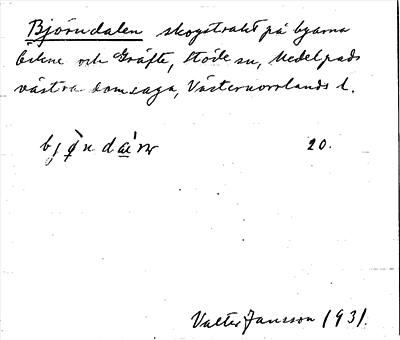 Björndalen skogstrakt på byarna
och Gräfte, Stöde sn, Medelpads
västra domsaga, Västernorrlands l.
20.
Valter Jansson 1931.